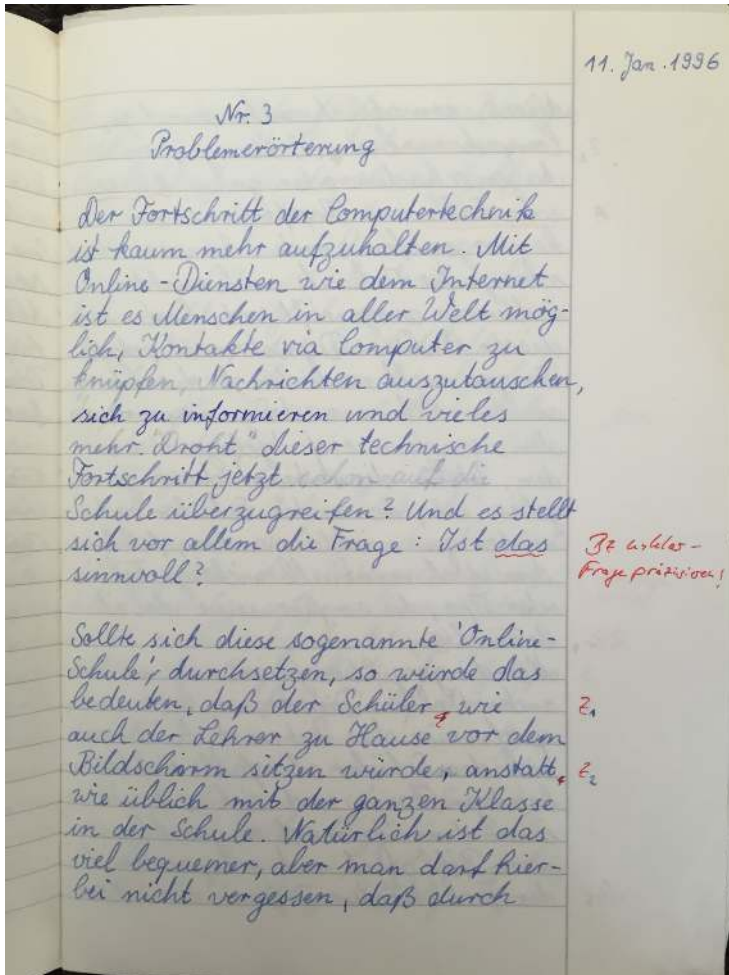 11. Jan. 1996
Nr. 3
Problemerörterung
Der Fortschritt der Computertechnik
ist kaum mehr aufzuhalten. Mit
Online-Diensten wie dem Internet
ist es Menschen in aller Welt mög-
lich, Kontakte via Computer zu
knüpfen, Nachrichten auszutauschen,
sich zu informieren und vieles
mehr. "Droht" dieser technische
Fortschritt jetzt schon auf die
Schule überzugreifen? Und es stellt
sich vor allem die Frage: Ist das
sinnvoll?
Bz unklar -
Frage präzisieren!
Sollte sich diese sogenannte 'Online-
Schule', durchsetzen, so würde das
bedeuten, daß der Schüler, wie
Z1
auch der Lehrer zu Hause vor dem
Bildschirm sitzen würde, anstatt,
Z2
wie üblich mit der ganzen Klasse
in der Schule. Natürlich ist das
viel bequemer, aber man darf hier-
bei nicht vergessen, daß durch